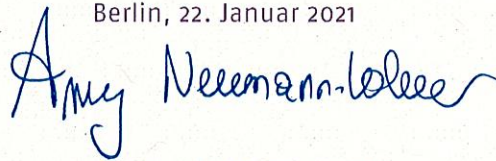 Berlin, 22. Januar 2021
Amy Neumann-Volmer